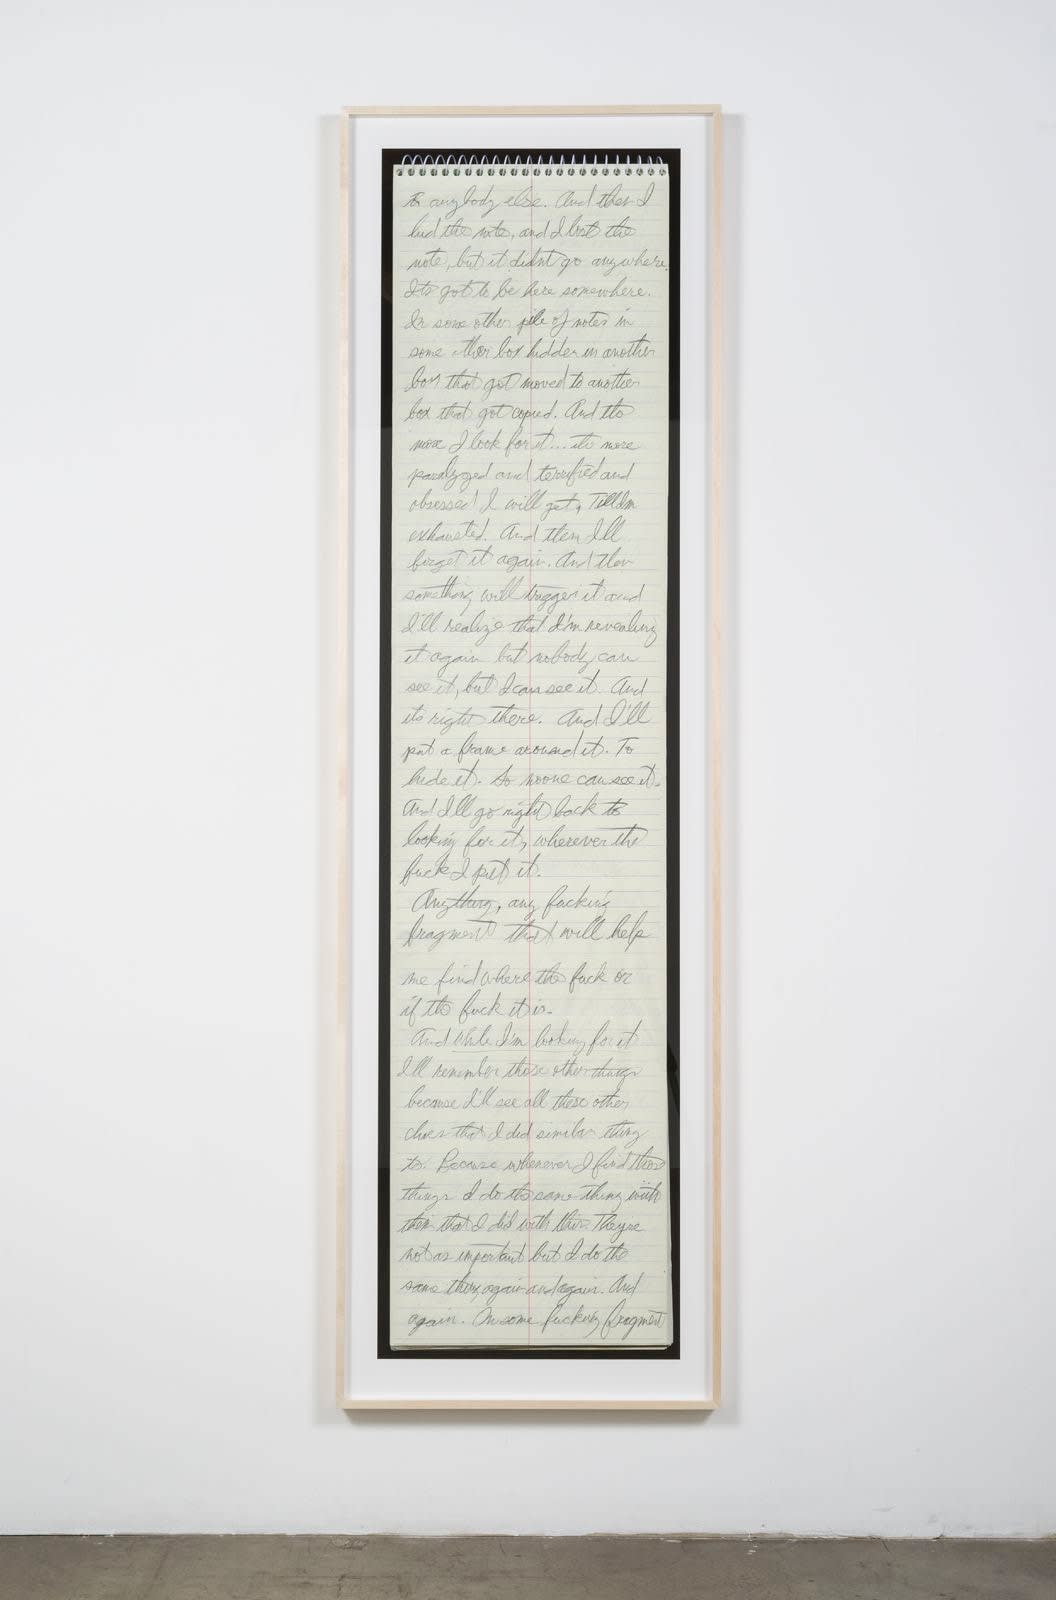 to anybody else. And then I
hid the note, and I lost the
note, but it didnt go anywhere.
Its got to be here somewhere.
In some other pile of notes in
some other box hidden in another
box that got moved to another
box that got copied. And the
more I look for it... the more
paralyzed and terrified and
obsessed I will get, Till Im
exhausted. And then Ill
forget it again. And then
something will trigger it and
I'll realize that I'm revealing
it again but nobody can
see it, but I can see it. And
its right there. And I'll
put a frame around it. To
hide it. So noone can see it.
And I'll go right back to
looking for it, wherever the
fuck I put it.
Anything, any fucking
fragment that will help
me find where the fuck or
if the fuck it is.
And while I'm looking for it
I'll remember those other things
because I'll see all these other
clues that I did similar thing
to. Because whenever I find those
things I do the same thing with
them that I did with this. Theyre
not as important but I do the
same thing again and again. And
again. In some fucking fragment